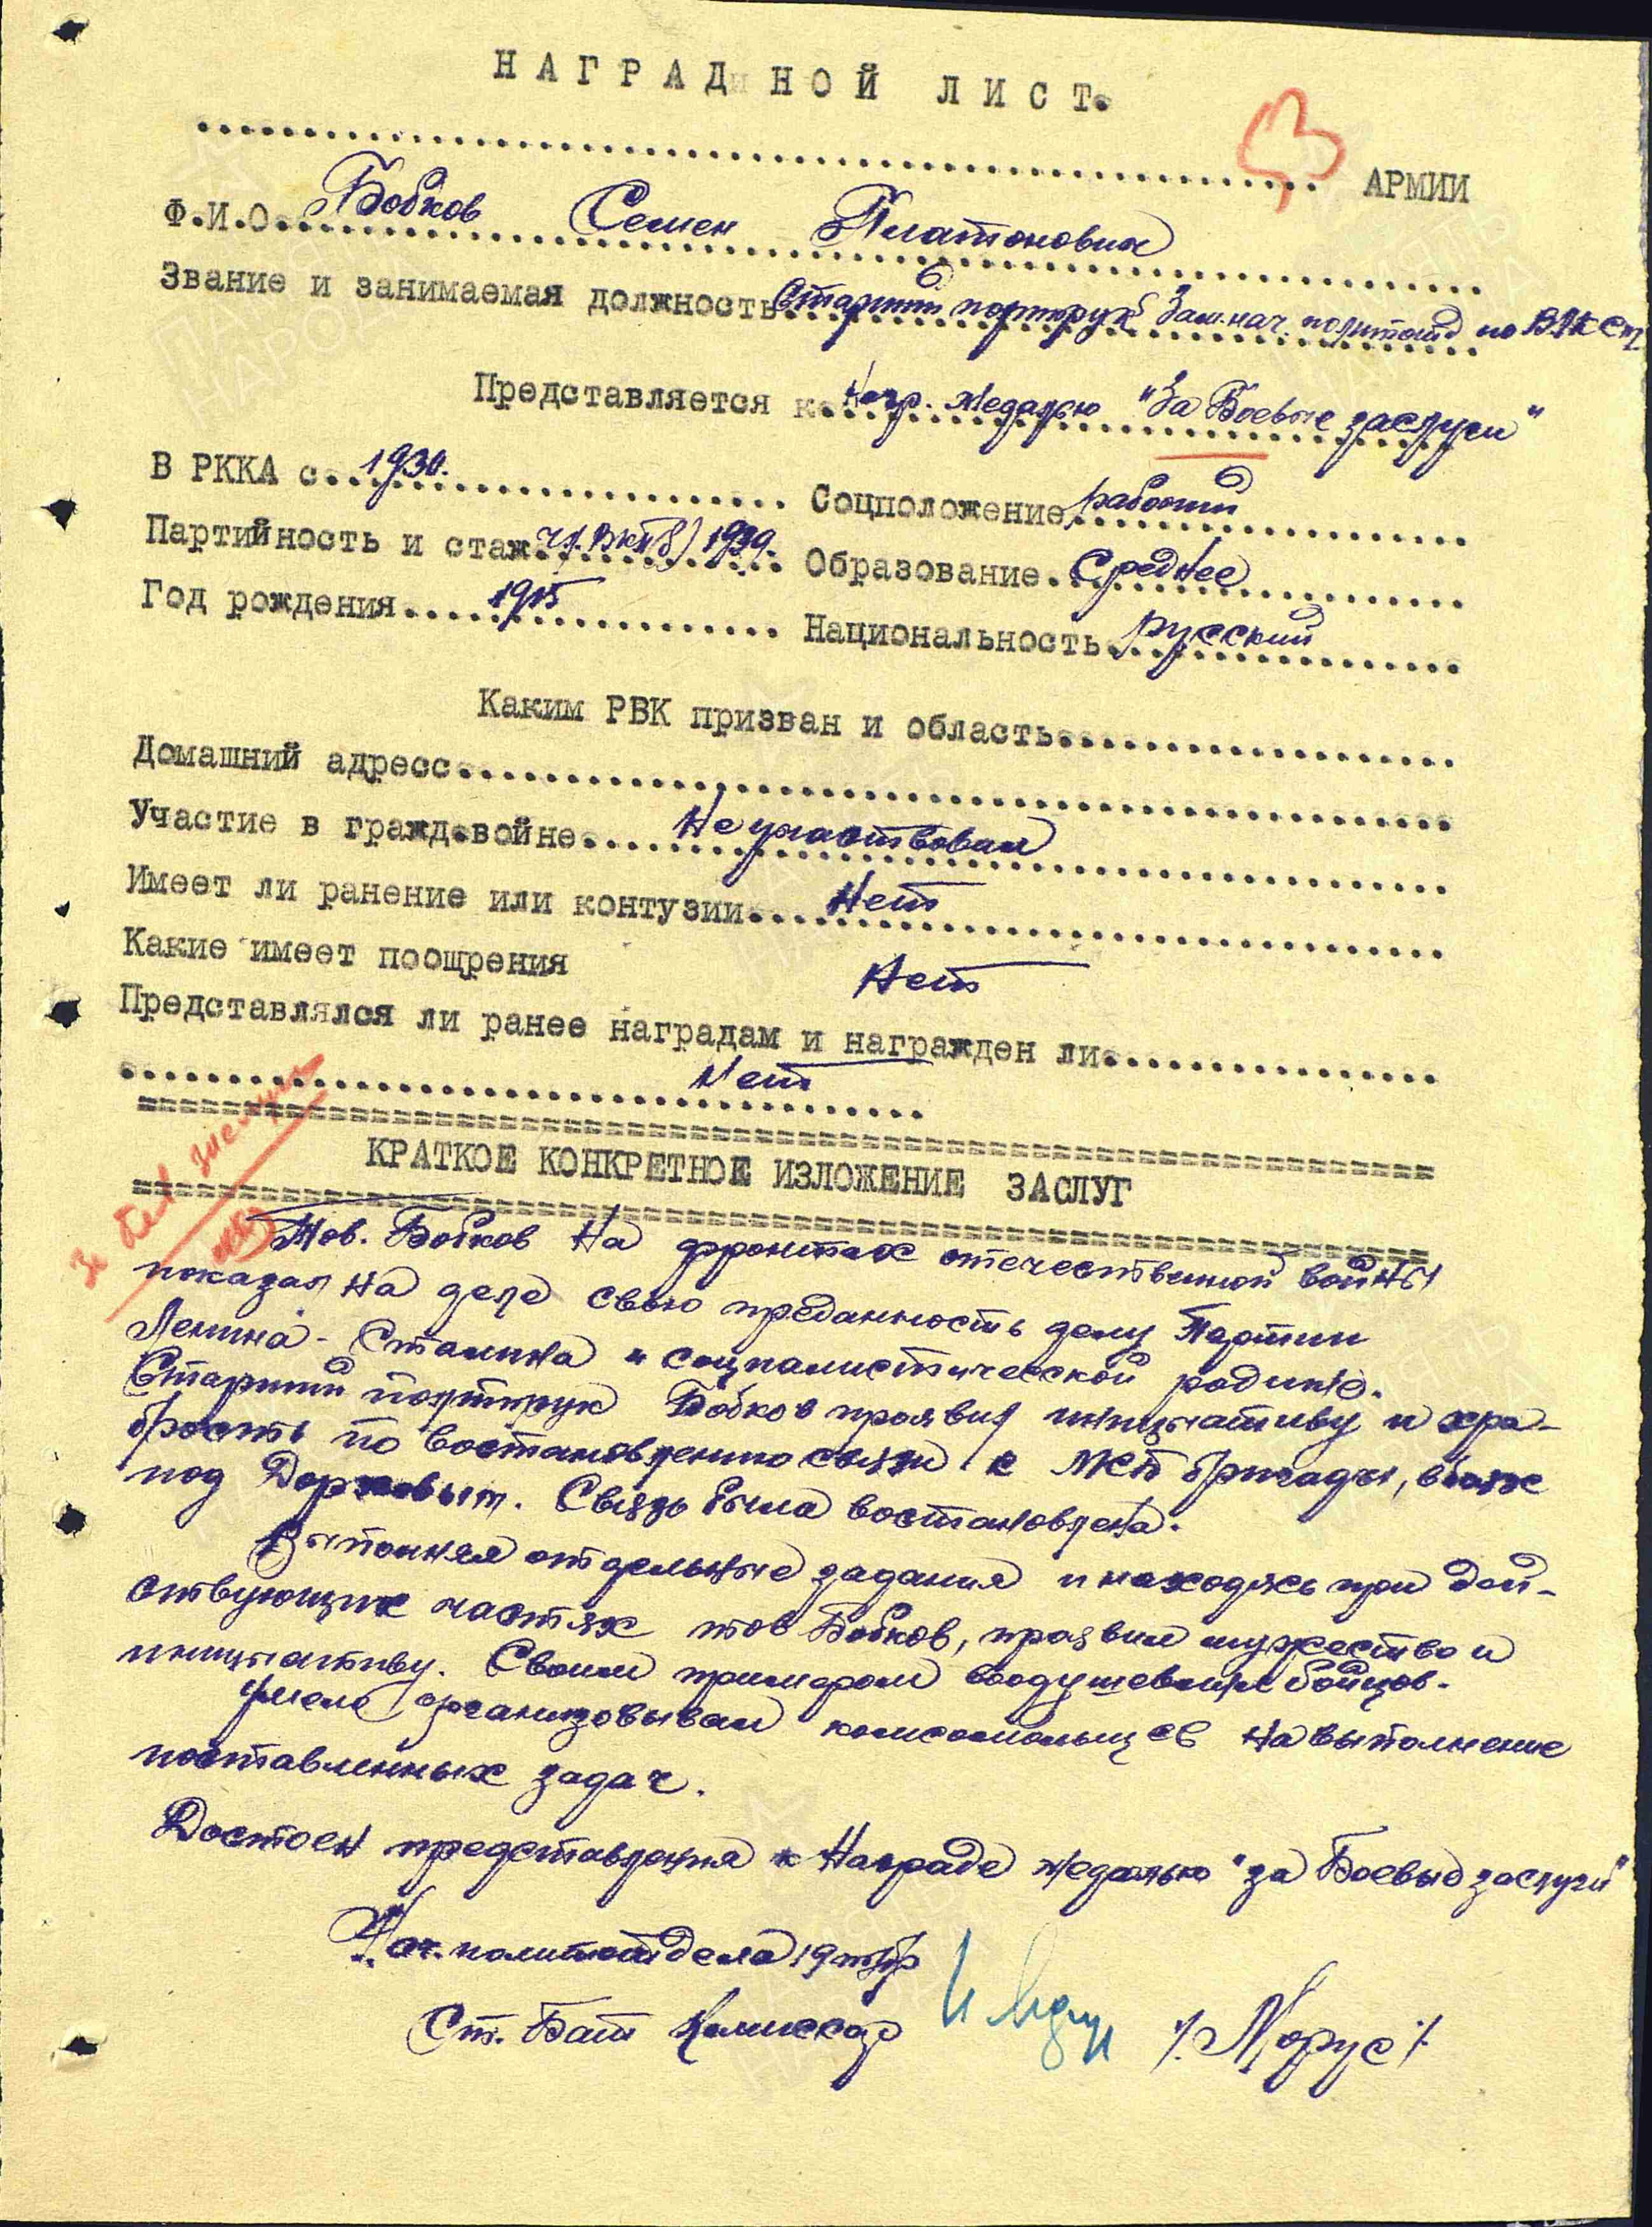 НАГРАДНОЙ ЛИСТ.
АРМИИ
Ф.И.О. Бобков Семен Платонович
Звание и занимаемая должность Старший политрук Зам.нач. политотд по ВЛКСМ
Представляется к Нагр. Медалью "За Боевые заслуги"
В РККА с 1930. Соцположение рабочий
Партийность и стаж чл. ВКП(б) 1939. Образование Среднее
Год рождения 1915 Национальность русский
Каким РВК призван и область
Домашний адресс
Участие в гражд.войне Не участвовал
Имеет ли ранение или контузии Нет
Какие имеет поощрения Нет
Представлялся ли ранее наградам и награжден ли
Нет
За боев заслуги
КРАТКОЕ КОНКРЕТНОЕ ИЗЛОЖЕНИЕ ЗАСЛУГ
Тов. Бобков На фронтах отечественной войны
показал на деле свою преданность делу Партии
Ленина - Сталина и социалистической родине.
Старший политрук Бобков проявил инициативу и хра-
брость по востановлению связи с МСПБ бригады, в бою
под . Связь была востановлена.
Выполняя отдельные задания и находясь при дей-
ствующих частях тов Бобков, проявил мужество и
инициативу. Своим примером воодушевлял бойцов.
Умело организовывал комсомольцев на выполнение
поставленных задач.
Достоен представления к Награде медалью "за Боевые заслуги"
Нач. политотдела 19 тбр
Ст. Бат Комиссар /. Морус /.